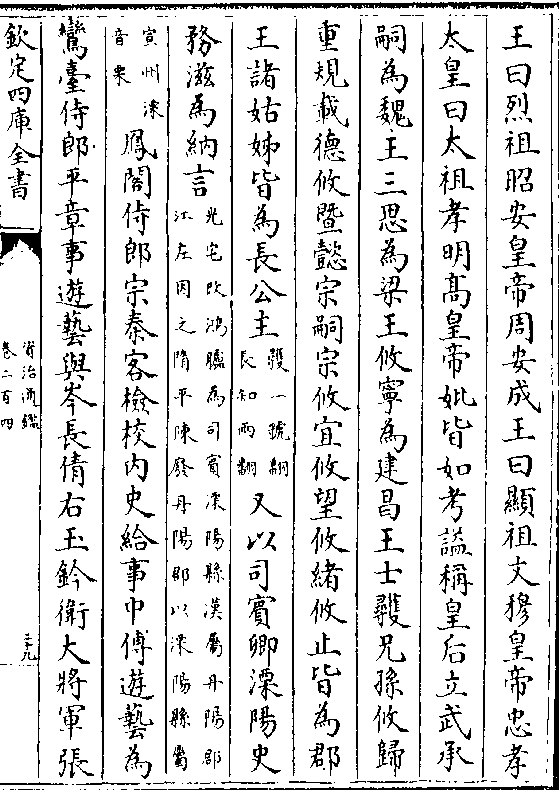 王曰烈祖昭安皇帝周安成王曰顯祖文穆皇帝忠孝
太皇曰太祖孝明髙皇帝妣皆如考諡稱皇后立武承
嗣為魏王三思為梁王攸寧為建昌王士彠兄孫攸歸
重規載德攸暨懿宗嗣宗攸宜攸望攸緒攸止皆為郡
王諸姑姊皆為長公主彠一虢翻長知兩翻又以司賓卿溧陽史
務滋為納言光宅改鴻臚為司賓溧陽縣漢屬丹陽郡江左因之隋平陳廢丹陽郡以溧陽縣屬
宣州溧音栗鳳閣侍郎宗秦客檢校内史給事中傅遊藝為
鸞臺侍郎平章事遊藝與岑長倩右玉鈐衛大將軍張
欽定四庫全書
資治通鑑
卷二百四